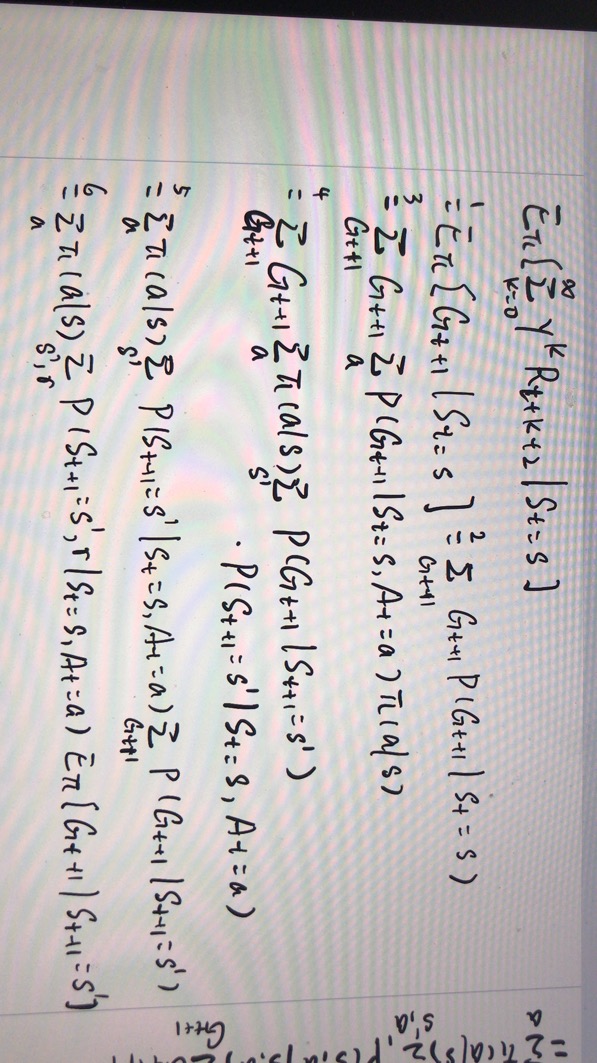 Eπ[ Σ_{k=0}^{∞} γ^k R_{t+k+2} | S_t = s ]
=^1 Eπ[ G_{t+1} | S_t = s ] =^2 Σ_{G_{t+1}} G_{t+1} P(G_{t+1} | S_t = s)
=^3 Σ_{G_{t+1}} G_{t+1} Σ_a P(G_{t+1} | S_t = s, A_t = a) π(a|s)
=^4 Σ_{G_{t+1}} G_{t+1} Σ_a π(a|s) Σ_{s'} P(G_{t+1} | S_{t+1} = s')
· P(S_{t+1} = s' | S_t = s, A_t = a)
=^5 Σ_a π(a|s) Σ_{s'} P(S_{t+1} = s' | S_t = s, A_t = a) Σ_{G_{t+1}} P(G_{t+1} | S_{t+1} = s')
=^6 Σ_a π(a|s) Σ_{s',r} P(S_{t+1} = s', r | S_t = s, A_t = a) Eπ[ G_{t+1} | S_{t+1} = s' ]
= Σ_a π(a|s) Σ
G_{t+1}